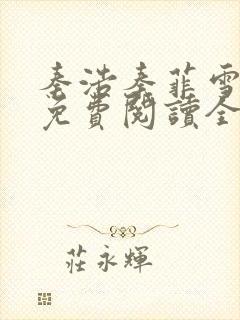 秦浩秦菲雪
免費閱讀全
莊永輝